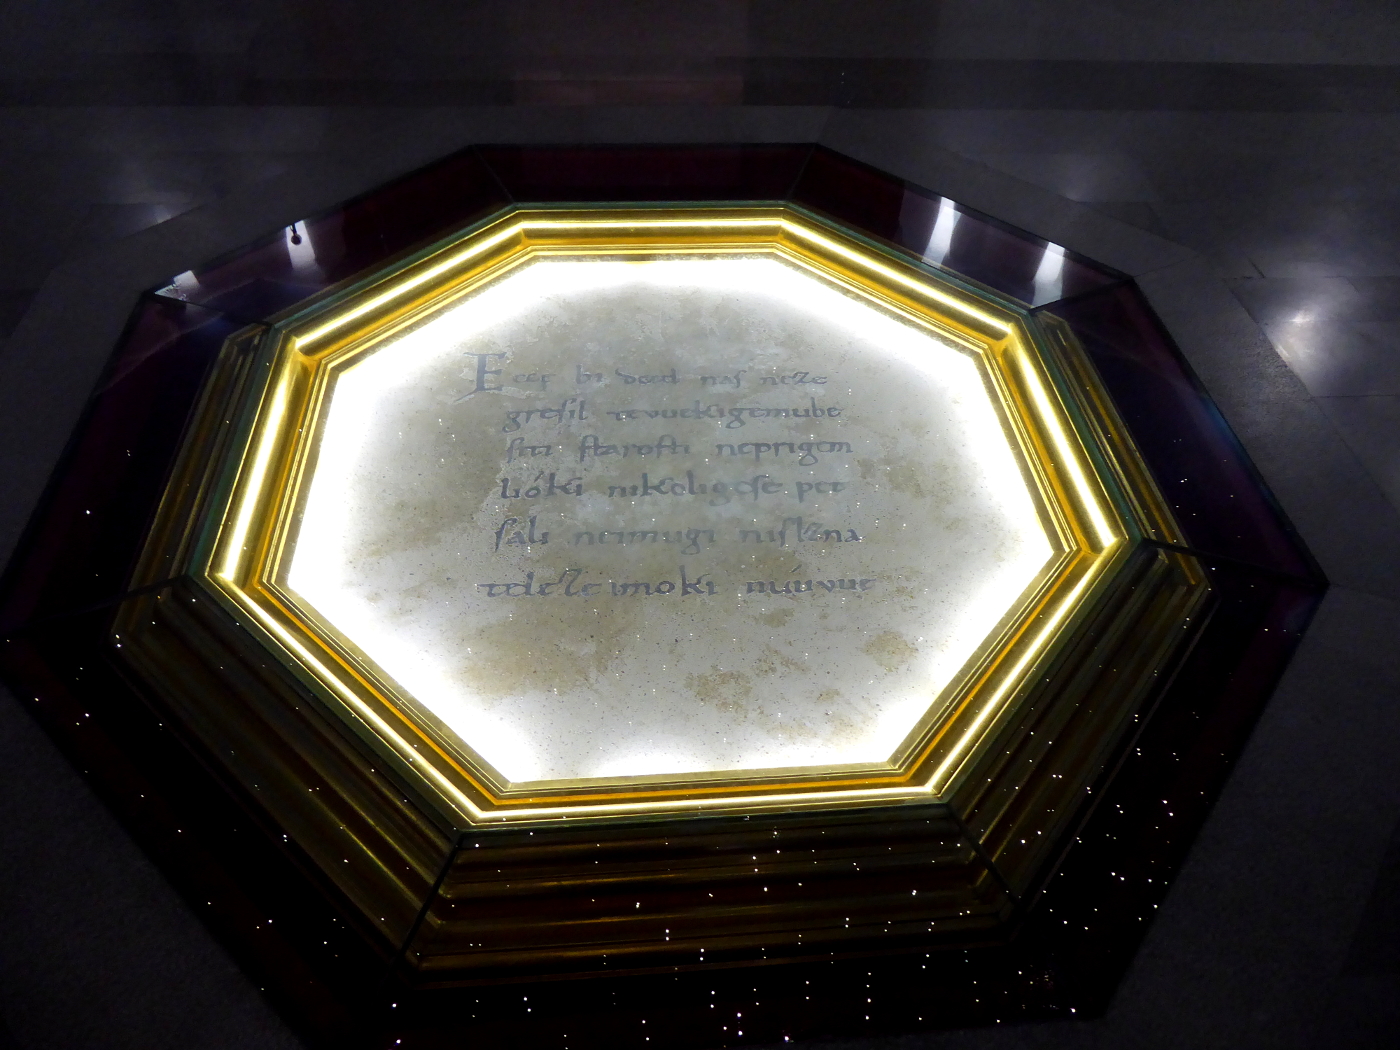 Eccę bi detd naſ neze
greſil tevuekigemube
ſiti ſtaroſti neprigem
lióki nikoligeſe pet
ſali neimugi niſlzna
teleze imoki nuúvue